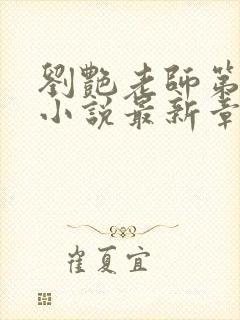 劉艷老師第
小說最新章
崔夏宜